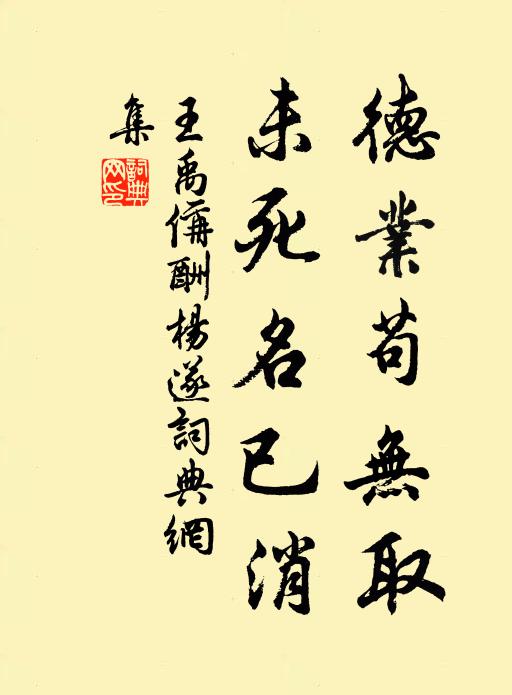 德業苟無取
未死名已消
王禹偁酬楊遂詞典網
集
詞典
网印